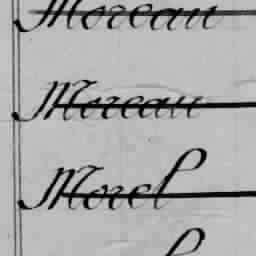 Moreau
Moreau
Morel